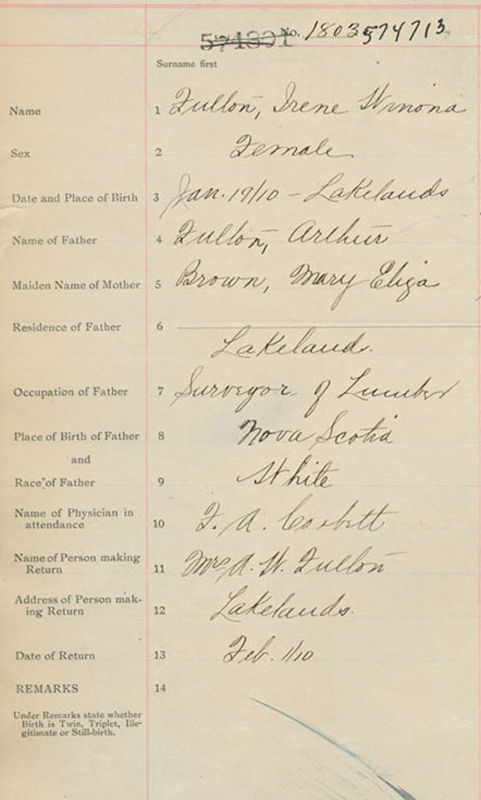 574391 No. 1803574713
Surname first
Name 1 Fulton, Irene Winona
Sex 2 Female
Date and Place of Birth 3 Jan. 19/10 - Lakelands
Name of Father 4 Fulton, Arthur
Maiden Name of Mother 5 Brown, Mary Eliza
Residence of Father 6
Lakelands.
Occupation of Father 7 Surveyor of Lumber
Place of Birth of Father 8 Nova Scotia
and
Race of Father 9 White
Name of Physician in
attendance 10 F. A. Corbett
Name of Person making
Return 11 Mrs A. W. Fulton
Address of Person mak-
ing Return 12 Lakelands.
Date of Return 13 Feb. 1/10
REMARKS 14
Under Remarks state whether
Birth is Twin, Triplet, Ille-
gitimate or Still-birth.